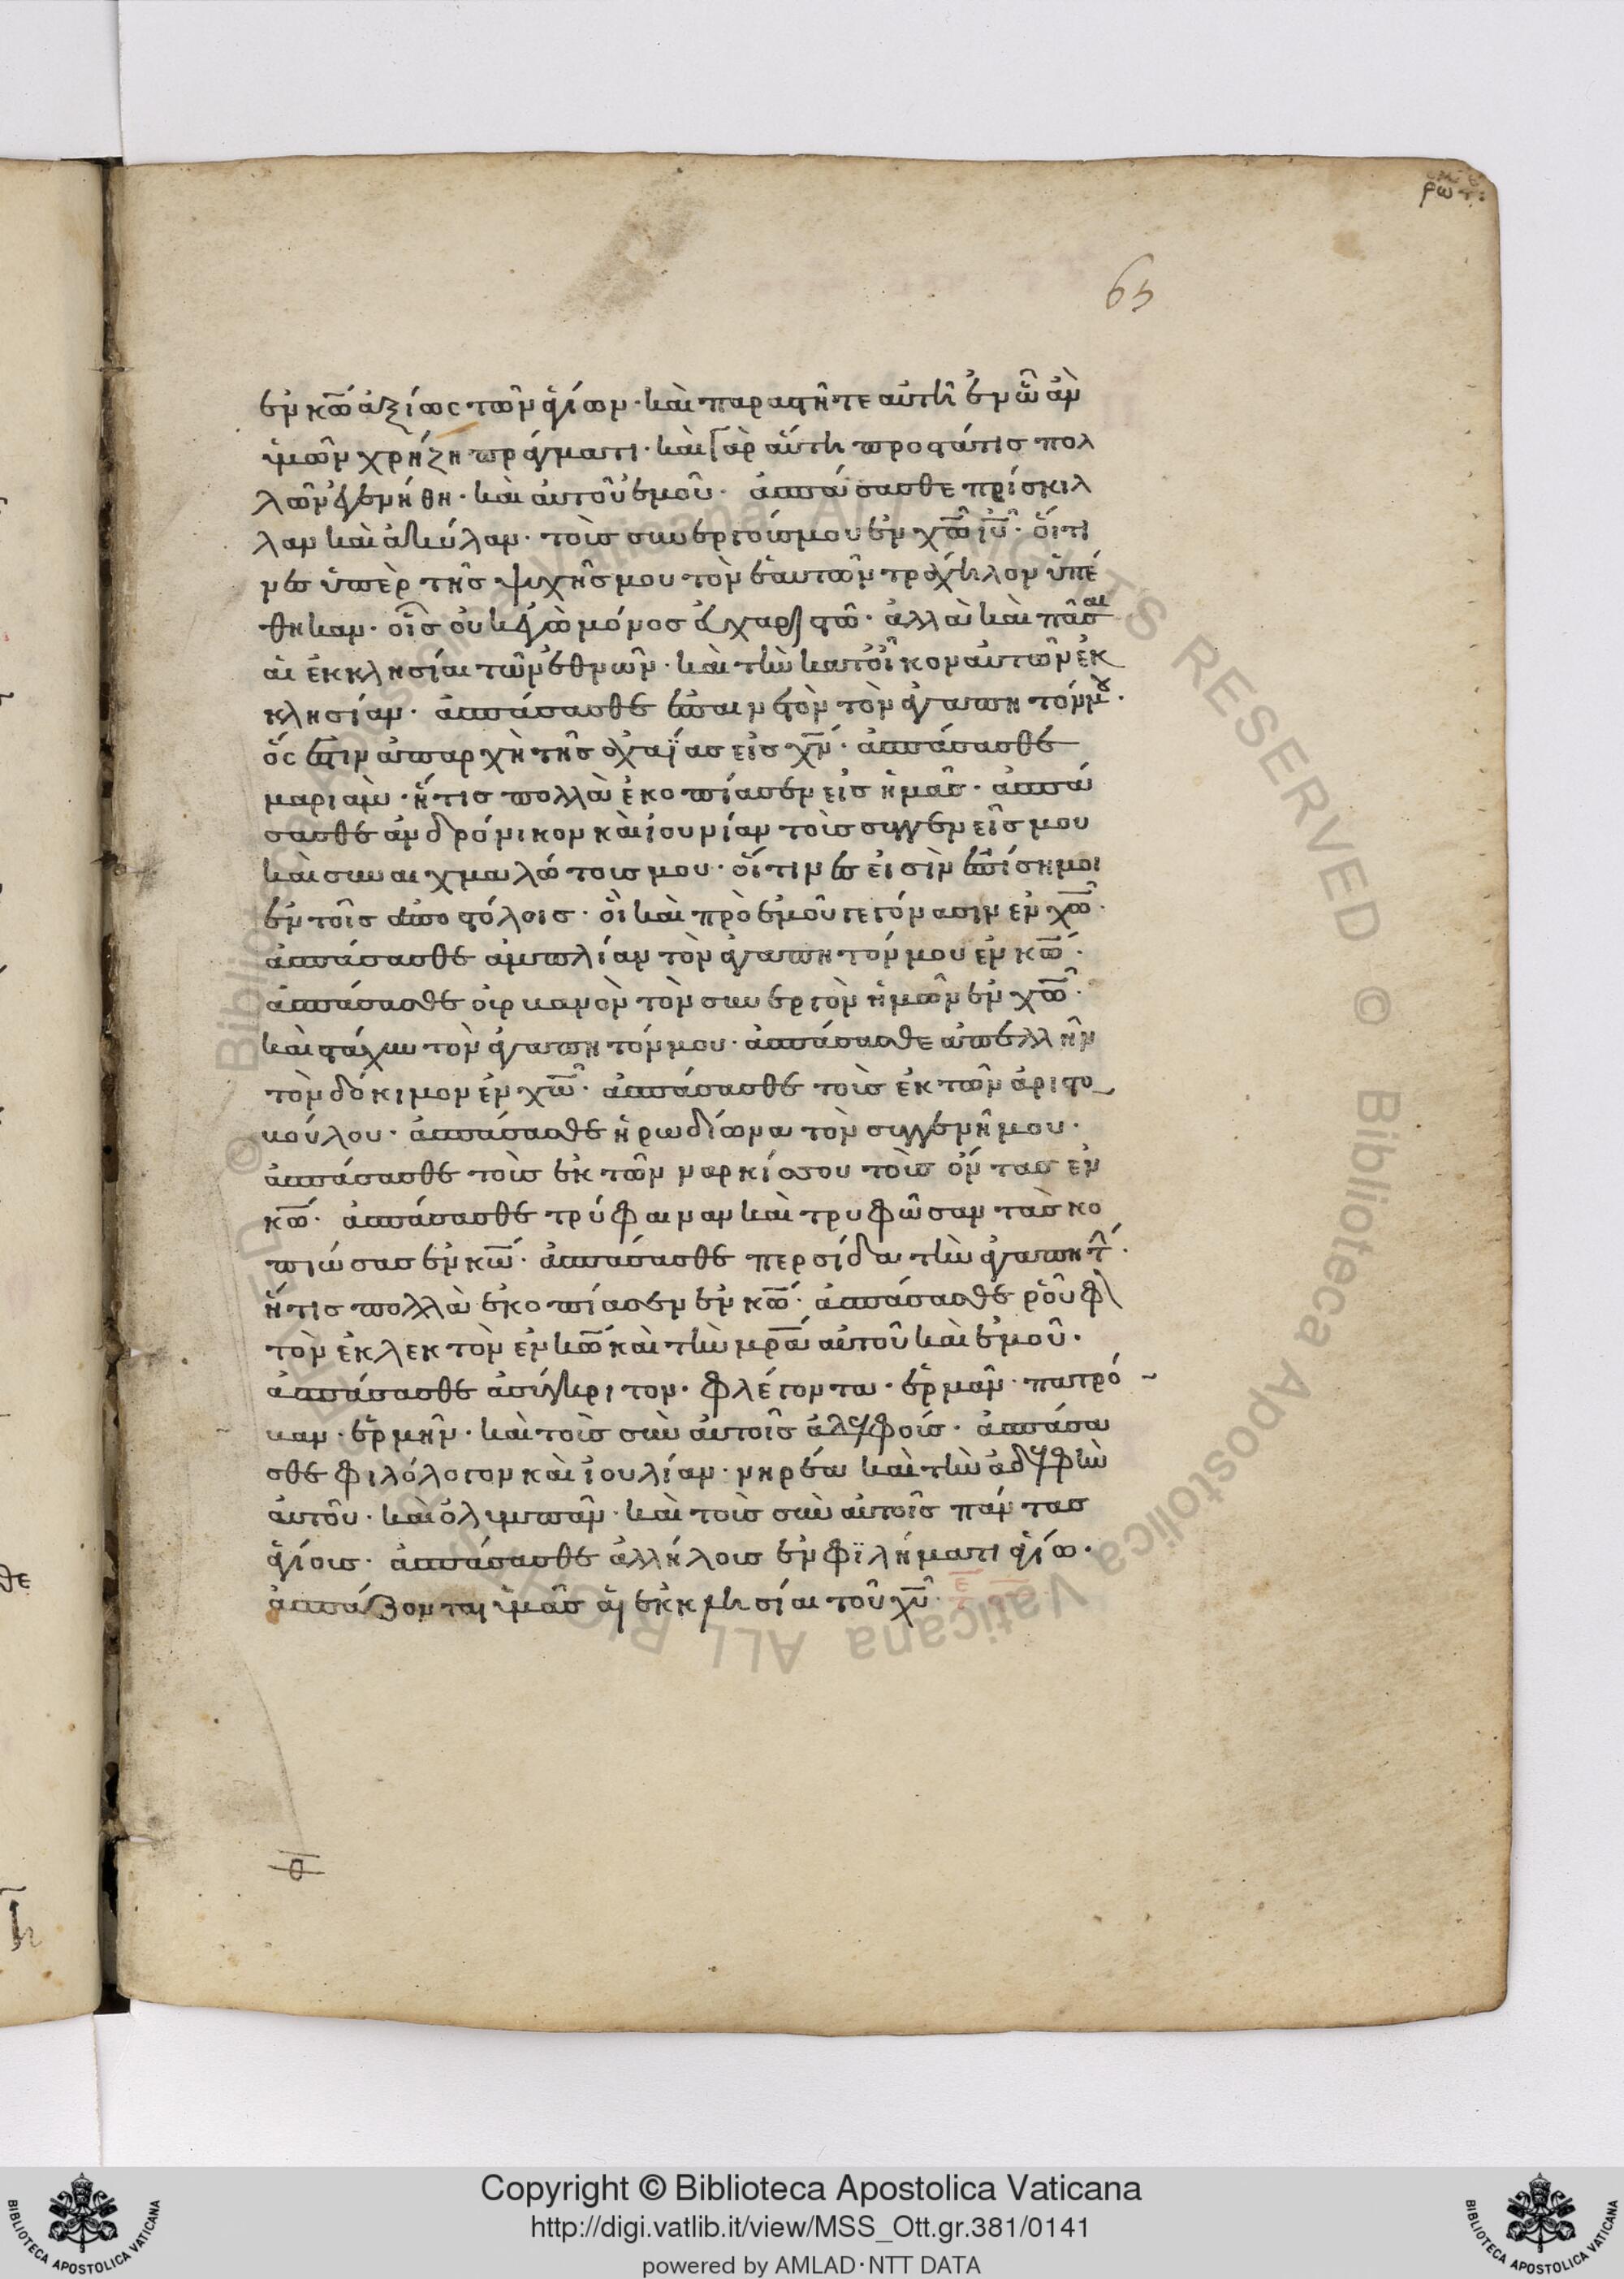 ρωμ
65
ἐν κω ἀξίως τῶν ἁγίων· καὶ παραστῆτε αὐτῆ ἐν ὧ ἂν
ὑμῶν χρήζη πράγματι· καὶ γὰρ αὕτη προστάτις πολ
λῶν ἐγενήθη· καὶ αὐτοῦ ἐμοῦ· ἀσπάσασθε πρίσκιλ
λαν καὶ ἀκύλαν· τοὺς συνεργούς μου ἐν χω ιυ· οἵτι
νες ὑπὲρ τῆς ψυχῆς μου τὸν ἑαυτῶν τράχηλον ὑπέ
θηκαν· οἷς οὐκ ἐγὼ μόνος εὐχαριστῶ· ἀλλὰ καὶ πᾶσαι
αἱ ἐκκλησίαι τῶν ἐθνῶν· καὶ τὴν κατ' οἶκον αὐτῶν ἐκ
κλησίαν· ἀσπάσασθε ἐπαινετὸν τὸν ἀγαπητόν μου·
ὅς ἐστιν ἀπαρχὴ τῆς ἀχαΐας εἰς χν· ἀσπάσασθε
μαριὰμ· ἥτις πολλὰ ἐκοπίασεν εἰς ἡμᾶς· ἀσπά
σασθε ἀνδρόνικον καὶ ἰουνίαν τοὺς συγγενεῖς μου
καὶ συναιχμαλώτους μου· οἵτινές εἰσὶν ἐπίσημοι
ἐν τοῖς ἀποστόλοις· οἳ καὶ πρὸ ἐμοῦ γεγόνασιν ἐν χω·
ἀσπάσασθε ἀμπλίαν τὸν ἀγαπητόν μου ἐν κω·
ἀσπάσασθε οὐρβανὸν τὸν συνεργὸν ἡμῶν ἐν χω·
καὶ στάχυν τὸν ἀγαπητόν μου· ἀσπάσασθε ἀπελλῆν
τὸν δόκιμον ἐν χω· ἀσπάσασθε τοὺς ἐκ τῶν ἀριστο
βούλου· ἀσπάσασθε ἡρωδίωνα τὸν συγγενῆ μου·
ἀσπάσασθε τοὺς ἐκ τῶν ναρκίσσου τοὺς ὄντας ἐν
κω· ἀσπάσασθε τρύφαιναν καὶ τρυφῶσαν τὰς κο
πιώσας ἐν κω· ἀσπάσασθε περσίδα τὴν ἀγαπητ·
ἥτις πολλὰ ἐκοπίασεν ἐν κω· ἀσπάσασθε ῥοῦφ
τὸν ἐκλεκτὸν ἐν κω καὶ τὴν μρα αὐτοῦ καὶ ἐμοῦ·
ἀσπάσασθε ἀσύγκριτον· φλέγοντα· ἑρμᾶν· πατρό
βαν· ἑρμῆν· καὶ τοὺς σὺν αὐτοῖς ἀδελφούς· ἀσπάσα
σθε φιλόλογον καὶ ἰουλίαν· νηρέα καὶ τὴν ἀδελφὴν
αὐτοῦ· καὶ ὀλυμπᾶν· καὶ τοὺς σὺν αὐτοῖς πάντας
ἁγίους· ἀσπάσασθε ἀλλήλους ἐν φϊλήματι ἁγίω·
ἀσπάζονται ὑμᾶς αἱ ἐκκλησίαι τοῦ χυ·
θε
© Biblioteca Apostolica Vaticana ALL RIGHTS RESERVED
© Biblioteca Apostolica Vaticana ALL RIGHTS RESERVED
Copyright © Biblioteca Apostolica Vaticana
http://digi.vatlib.it/view/MSS_Ott.gr.381/0141
powered by AMLAD·NTT DATA
BIBLIOTECA APOSTOLICA VATICANA
BIBLIOTECA APOSTOLICA VATICANA